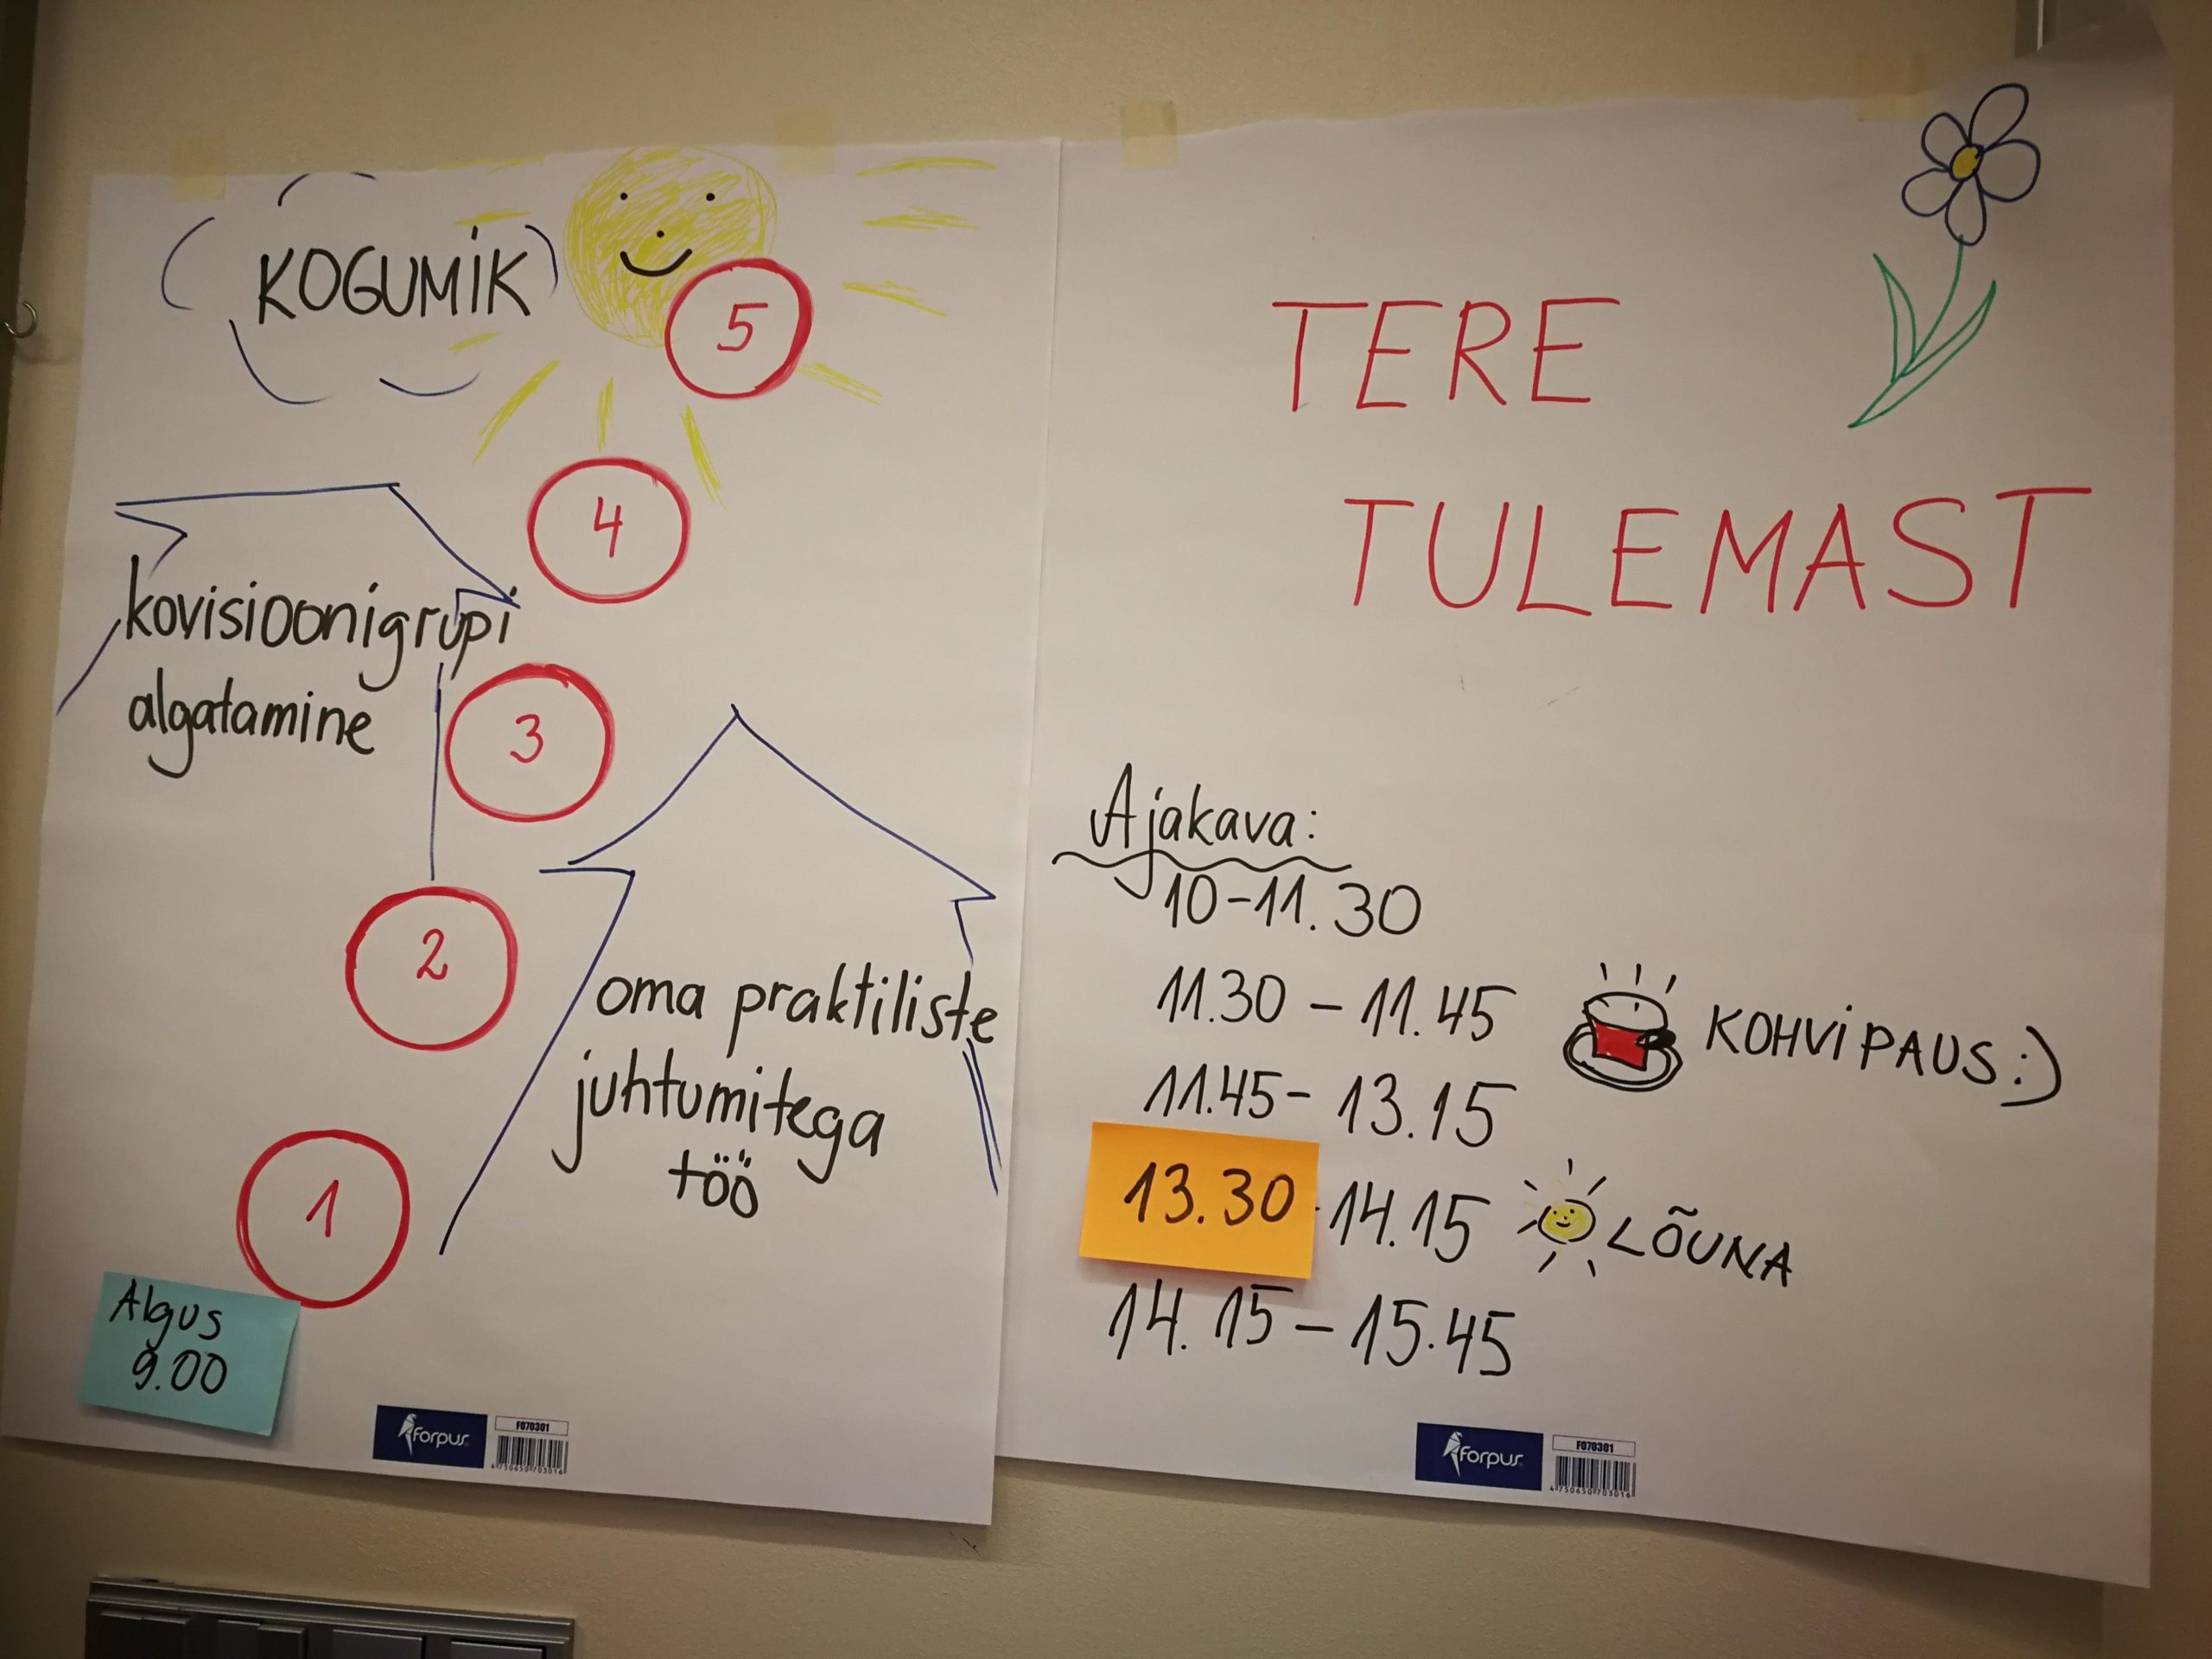 KOGUMIK
5
4
kovisioonigrupi
algatamine
3
2
oma praktiliste
juhtumitega
töö
1
Algus
9.00
forpus
F070301
4750650703016
TERE
TULEMAST
Ajakava:
10-11.30
11.30 - 11.45 KOHVIPAUS :)
11.45 - 13.15
13.30 - 14.15 LÕUNA
14.15 - 15.45
forpus
F070301
4750650703016